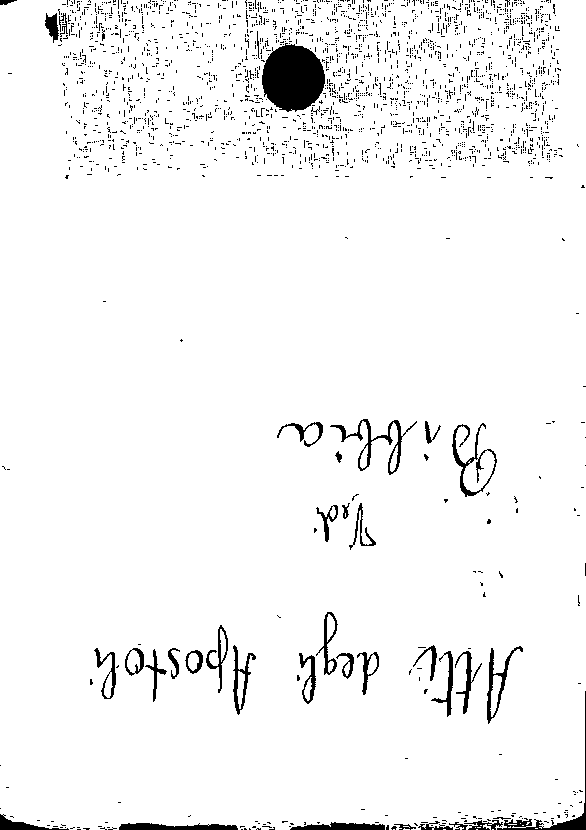 Atti degli Apostoli
Vedi
Bibbia